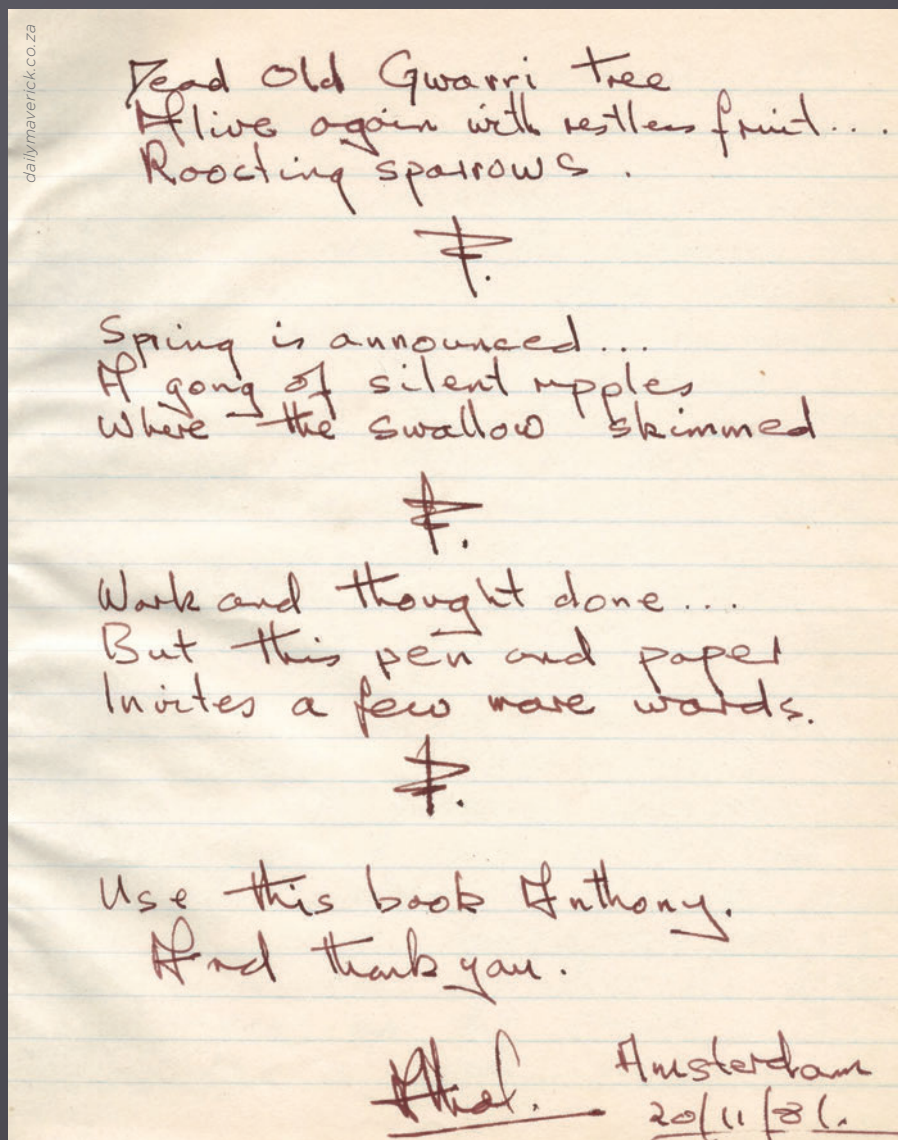 dailymaverick.co.za
Dead Old Gwarri tree
Alive again with restless fruit...
Roosting sparrows.
Spring is announced...
A gong of silent ripples
Where the swallow skimmed
Work and thought done...
But this pen and paper
Invites a few more words.
Use this book Anthony.
And thank you.
Athol.
Amsterdam
20/11/81.